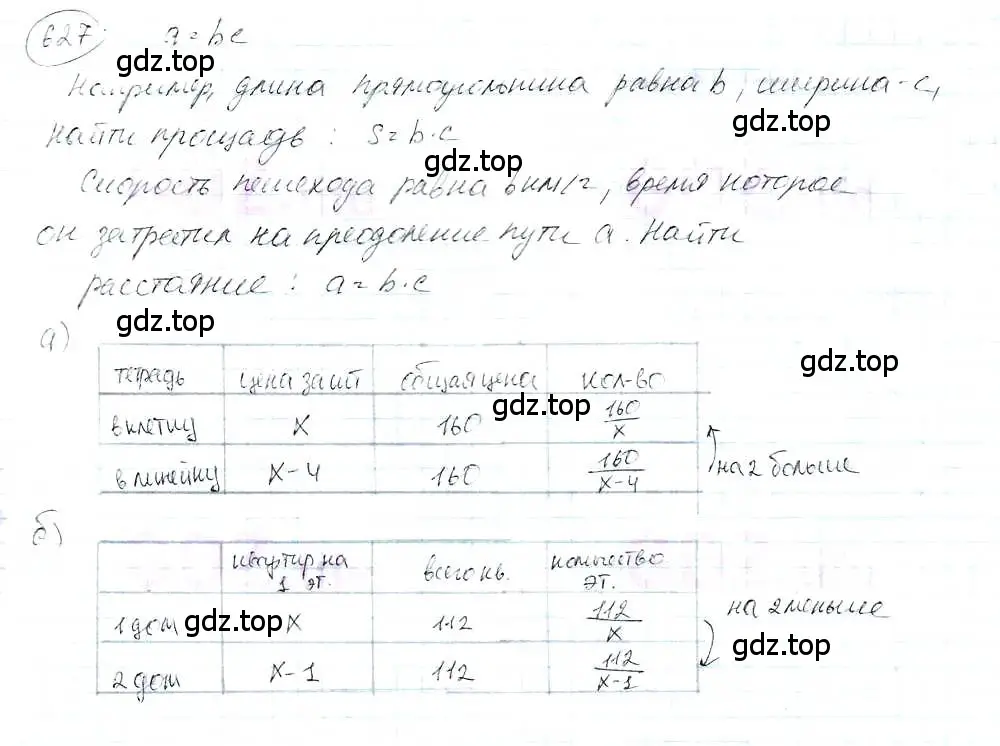 627. a = bc
Например, длина прямоугольника равна b, ширина - c,
найти площадь : S = b · c
Скорость пешехода равна b км/ч, время которое
он затратил на преодоление пути a. Найти
расстояние : a = b · c
а)
тетрадь цена за шт общая цена кол-во
в клетку x 160 160/x
в линейку x-4 160 160/x-4 на 2 больше
б)
квартир на 1 эт. всего кв. количество эт.
1 дом x 112 112/x на 2 меньше
2 дом x-1 112 112/x-1
gdz.top
gdz.top
gdz.top
gdz.top
gdz.top
gdz.top
gdz.top
gdz.top
gdz.top